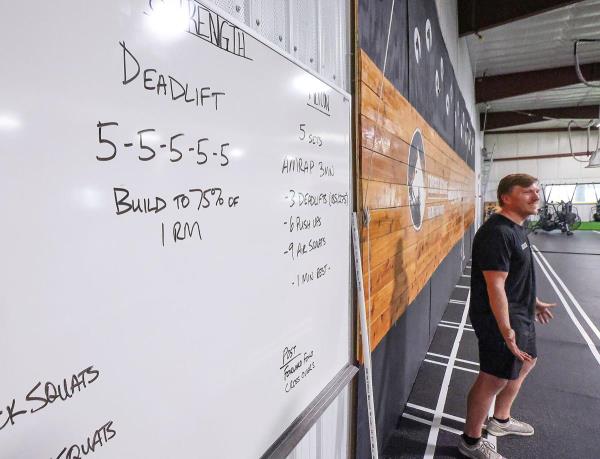 STRENGTH
DEADLIFT
5-5-5-5-5
BUILD TO 75% OF
1RM
5 SETS
AMRAP 3MIN
-3 DEADLIFTS
-6 PUSH UPS
-9 AIR SQUATS
-1 MIN REST-
POST
FORWARD FOLD
CROSS OVERS
SQUATS
SQUATS